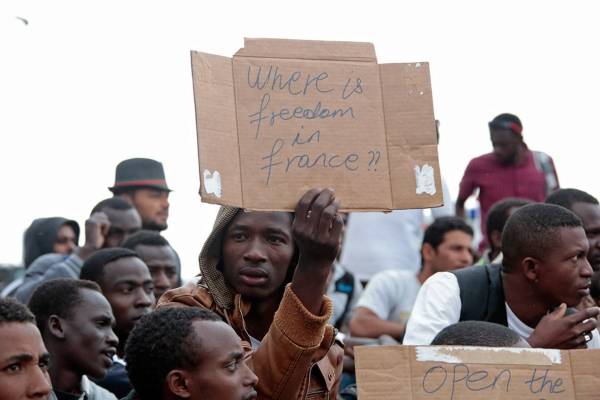 Where is
freedom
in
france??
Open the